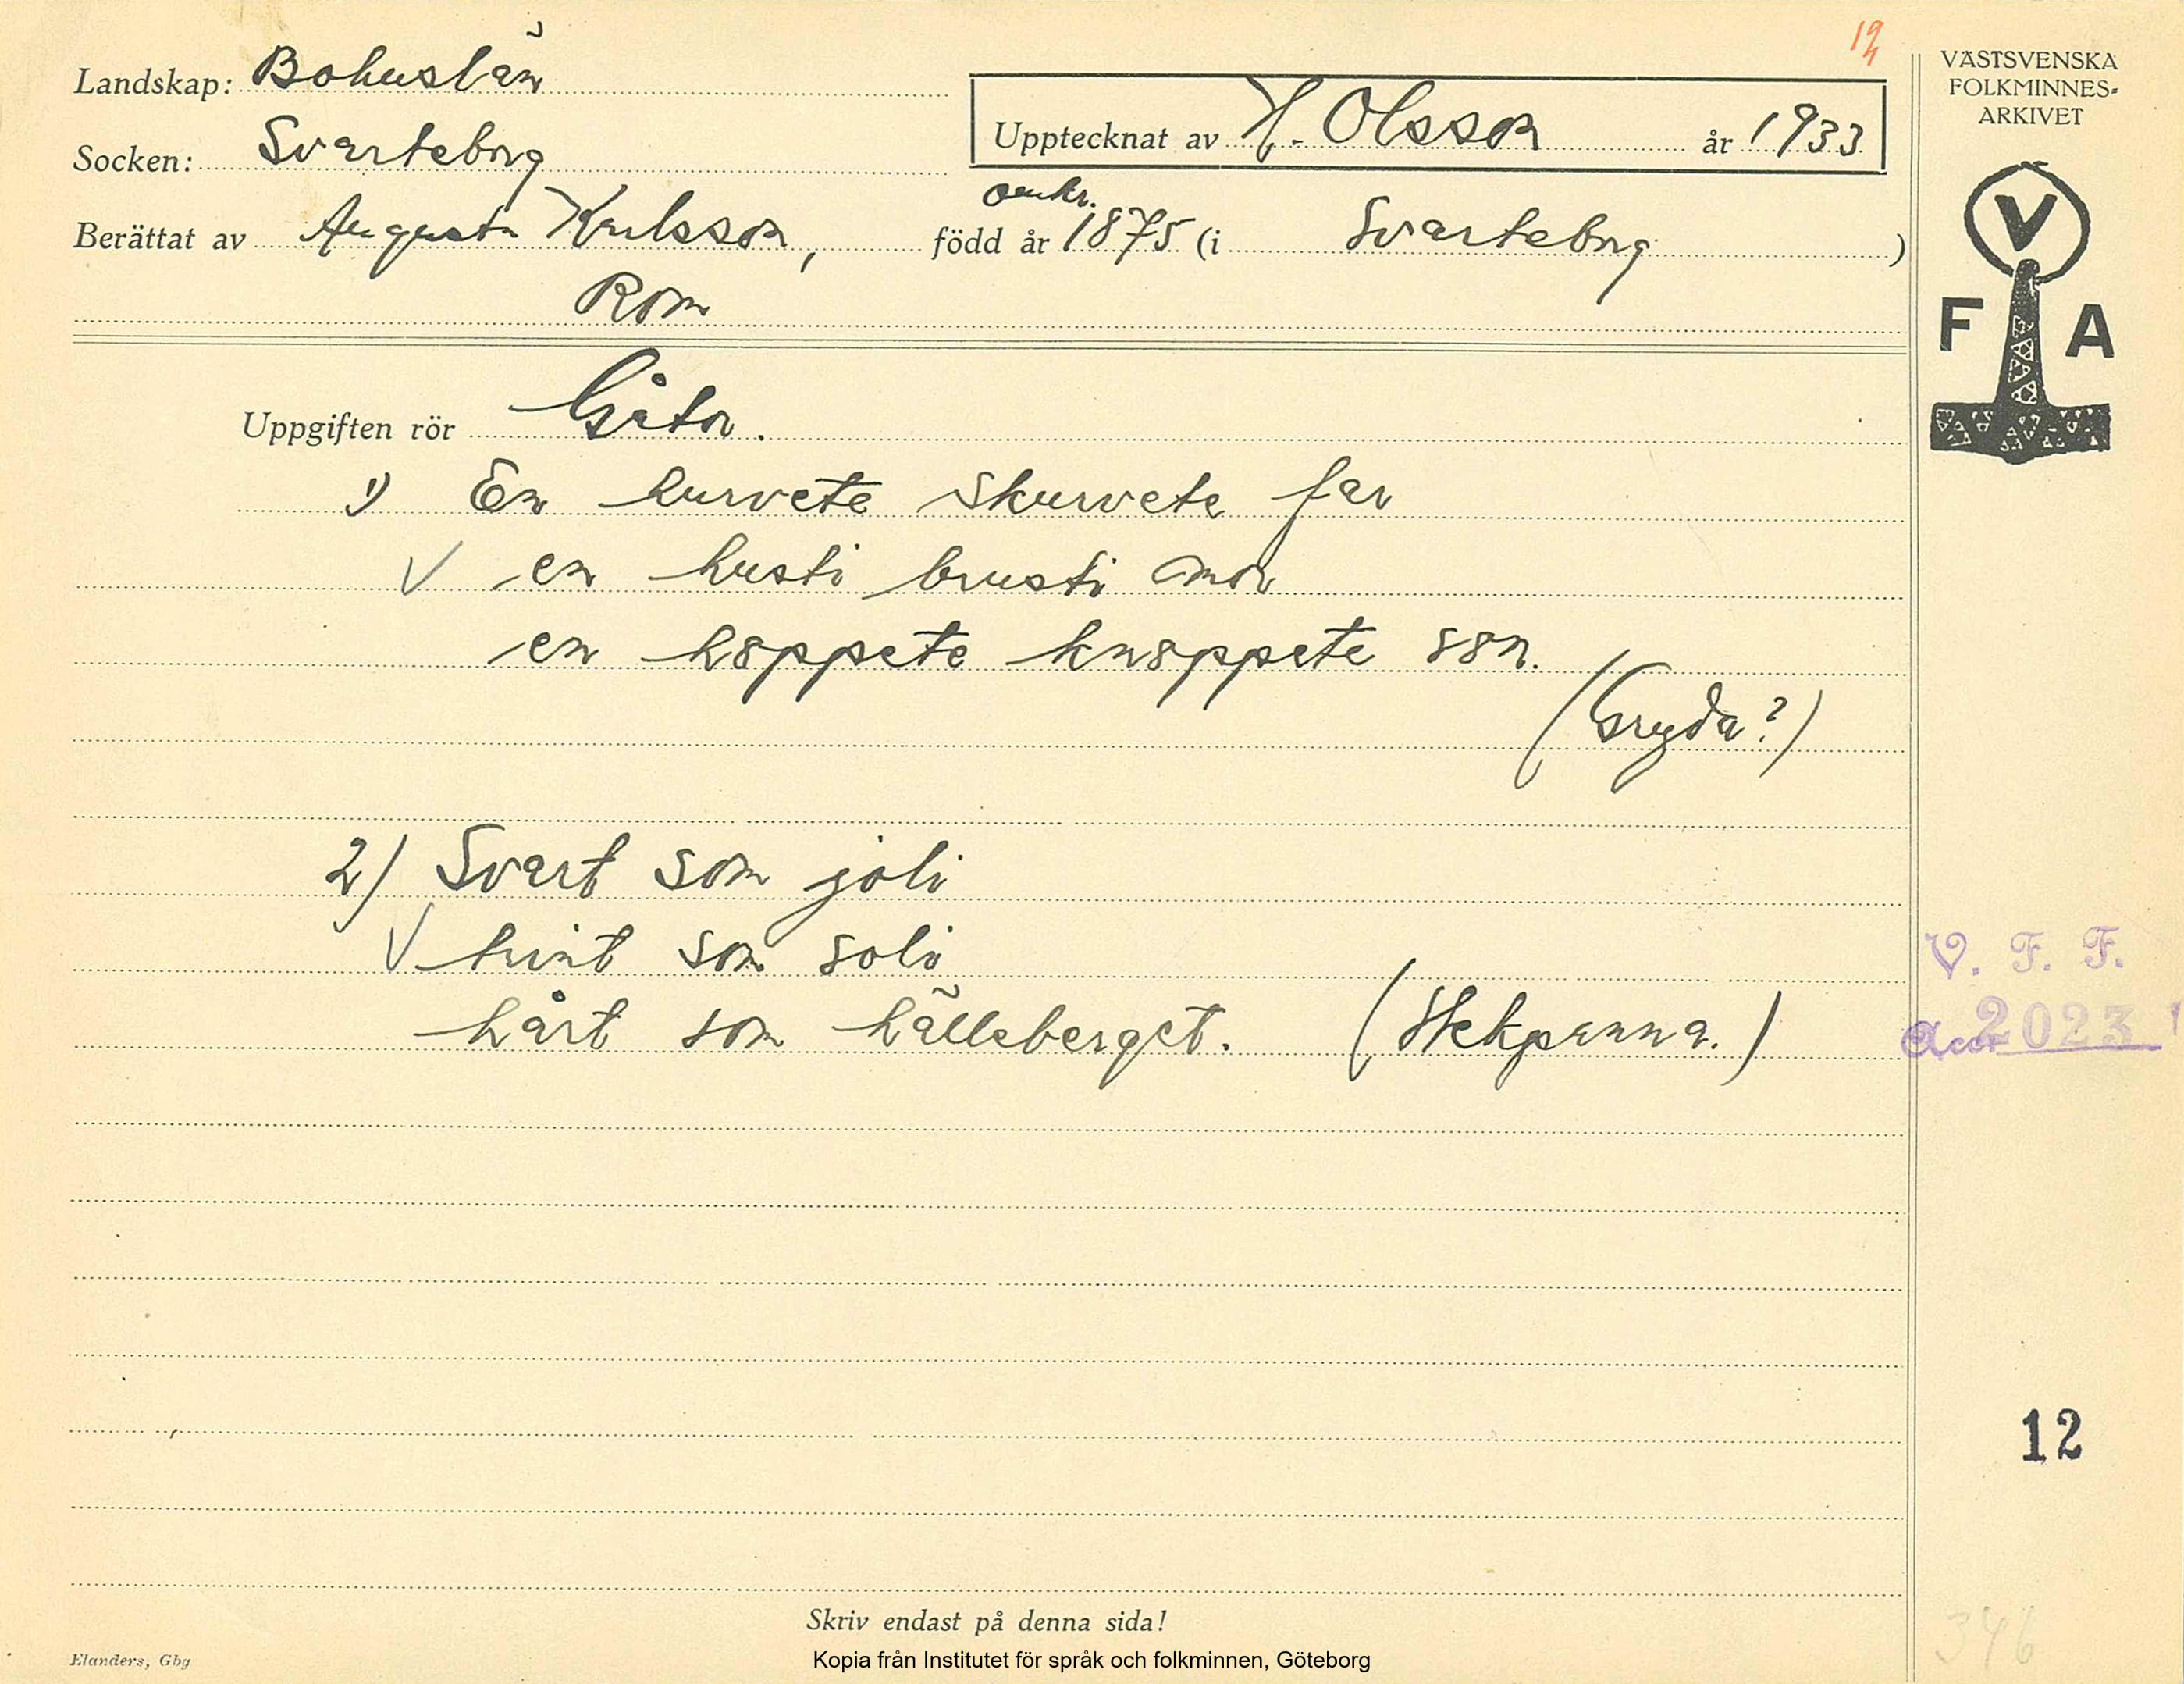 19
4
Landskap: Bohuslän
Socken: Svarteborg
Upptecknat av H. Olsson år 1933
Berättat av Augusta Karlsson, född år omkr. 1875 (i Svarteborg)
Rom
Uppgiften rör Gåtor.
1) En kurvete skurvete far
en husti brusti mor
en hoppete knoppete son.
(Gryda?)
2) Svart som joli
trint som soli
hårt som hälleberget. (Stekpanna.)
VÄSTSVENSKA
FOLKMINNES-
ARKIVET
V
F A
V. F. F.
Acc 2023
12
346
Skriv endast på denna sida!
Elanders, Gbg
Kopia från Institutet för språk och folkminnen, Göteborg